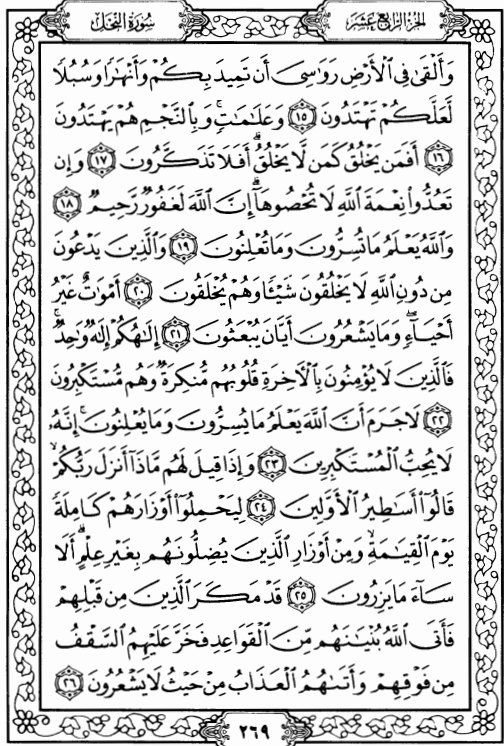 سُورَةُ النَّحْلِ
الجُزْءُ الرَّابِعَ عَشَرَ
وَأَلْقَىٰ فِي ٱلْأَرْضِ رَوَٰسِيَ أَن تَمِيدَ بِكُمْ وَأَنْهَٰرًا وَسُبُلًا
لَّعَلَّكُمْ تَهْتَدُونَ ١٥ وَعَلَٰمَٰتٍ ۚ وَبِٱلنَّجْمِ هُمْ يَهْتَدُونَ
١٦ أَفَمَن يَخْلُقُ كَمَن لَّا يَخْلُقُ ۗ أَفَلَا تَذَكَّرُونَ ١٧ وَإِن
تَعُدُّوا۟ نِعْمَةَ ٱللَّهِ لَا تُحْصُوهَآ ۗ إِنَّ ٱللَّهَ لَغَفُورٌ رَّحِيمٌ ١٨
وَٱللَّهُ يَعْلَمُ مَا تُسِرُّونَ وَمَا تُعْلِنُونَ ١٩ وَٱلَّذِينَ يَدْعُونَ
مِن دُونِ ٱللَّهِ لَا يَخْلُقُونَ شَيْـًٔا وَهُمْ يُخْلَقُونَ ٢٠ أَمْوَٰتٌ غَيْرُ
أَحْيَآءٍ ۖ وَمَا يَشْعُرُونَ أَيَّانَ يُبْعَثُونَ ٢١ إِلَٰهُكُمْ إِلَٰهٌ وَٰحِدٌ ۚ
فَٱلَّذِينَ لَا يُؤْمِنُونَ بِٱلْأَخِرَةِ قُلُوبُهُم مُّنكِرَةٌ وَهُم مُّسْتَكْبِرُونَ
٢٢ لَا جَرَمَ أَنَّ ٱللَّهَ يَعْلَمُ مَا يُسِرُّونَ وَمَا يُعْلِنُونَ ۚ إِنَّهُۥ
لَا يُحِبُّ ٱلْمُسْتَكْبِرِينَ ٢٣ وَإِذَا قِيلَ لَهُم مَّاذَآ أَنزَلَ رَبُّكُمْ ۙ
قَالُوٓا۟ أَسَٰطِيرُ ٱلْأَوَّلِينَ ٢٤ لِيَحْمِلُوٓا۟ أَوْزَارَهُمْ كَامِلَةً
يَوْمَ ٱلْقِيَٰمَةِ ۙ وَمِنْ أَوْزَارِ ٱلَّذِينَ يُضِلُّونَهُم بِغَيْرِ عِلْمٍ ۗ أَلَا
سَآءَ مَا يَزِرُونَ ٢٥ قَدْ مَكَرَ ٱلَّذِينَ مِن قَبْلِهِمْ
فَأَتَى ٱللَّهُ بُنْيَٰنَهُم مِّنَ ٱلْقَوَاعِدِ فَخَرَّ عَلَيْهِمُ ٱلسَّقْفُ
مِن فَوْقِهِمْ وَأَتَىٰهُمُ ٱلْعَذَابُ مِنْ حَيْثُ لَا يَشْعُرُونَ ٢٦
٢٦٩